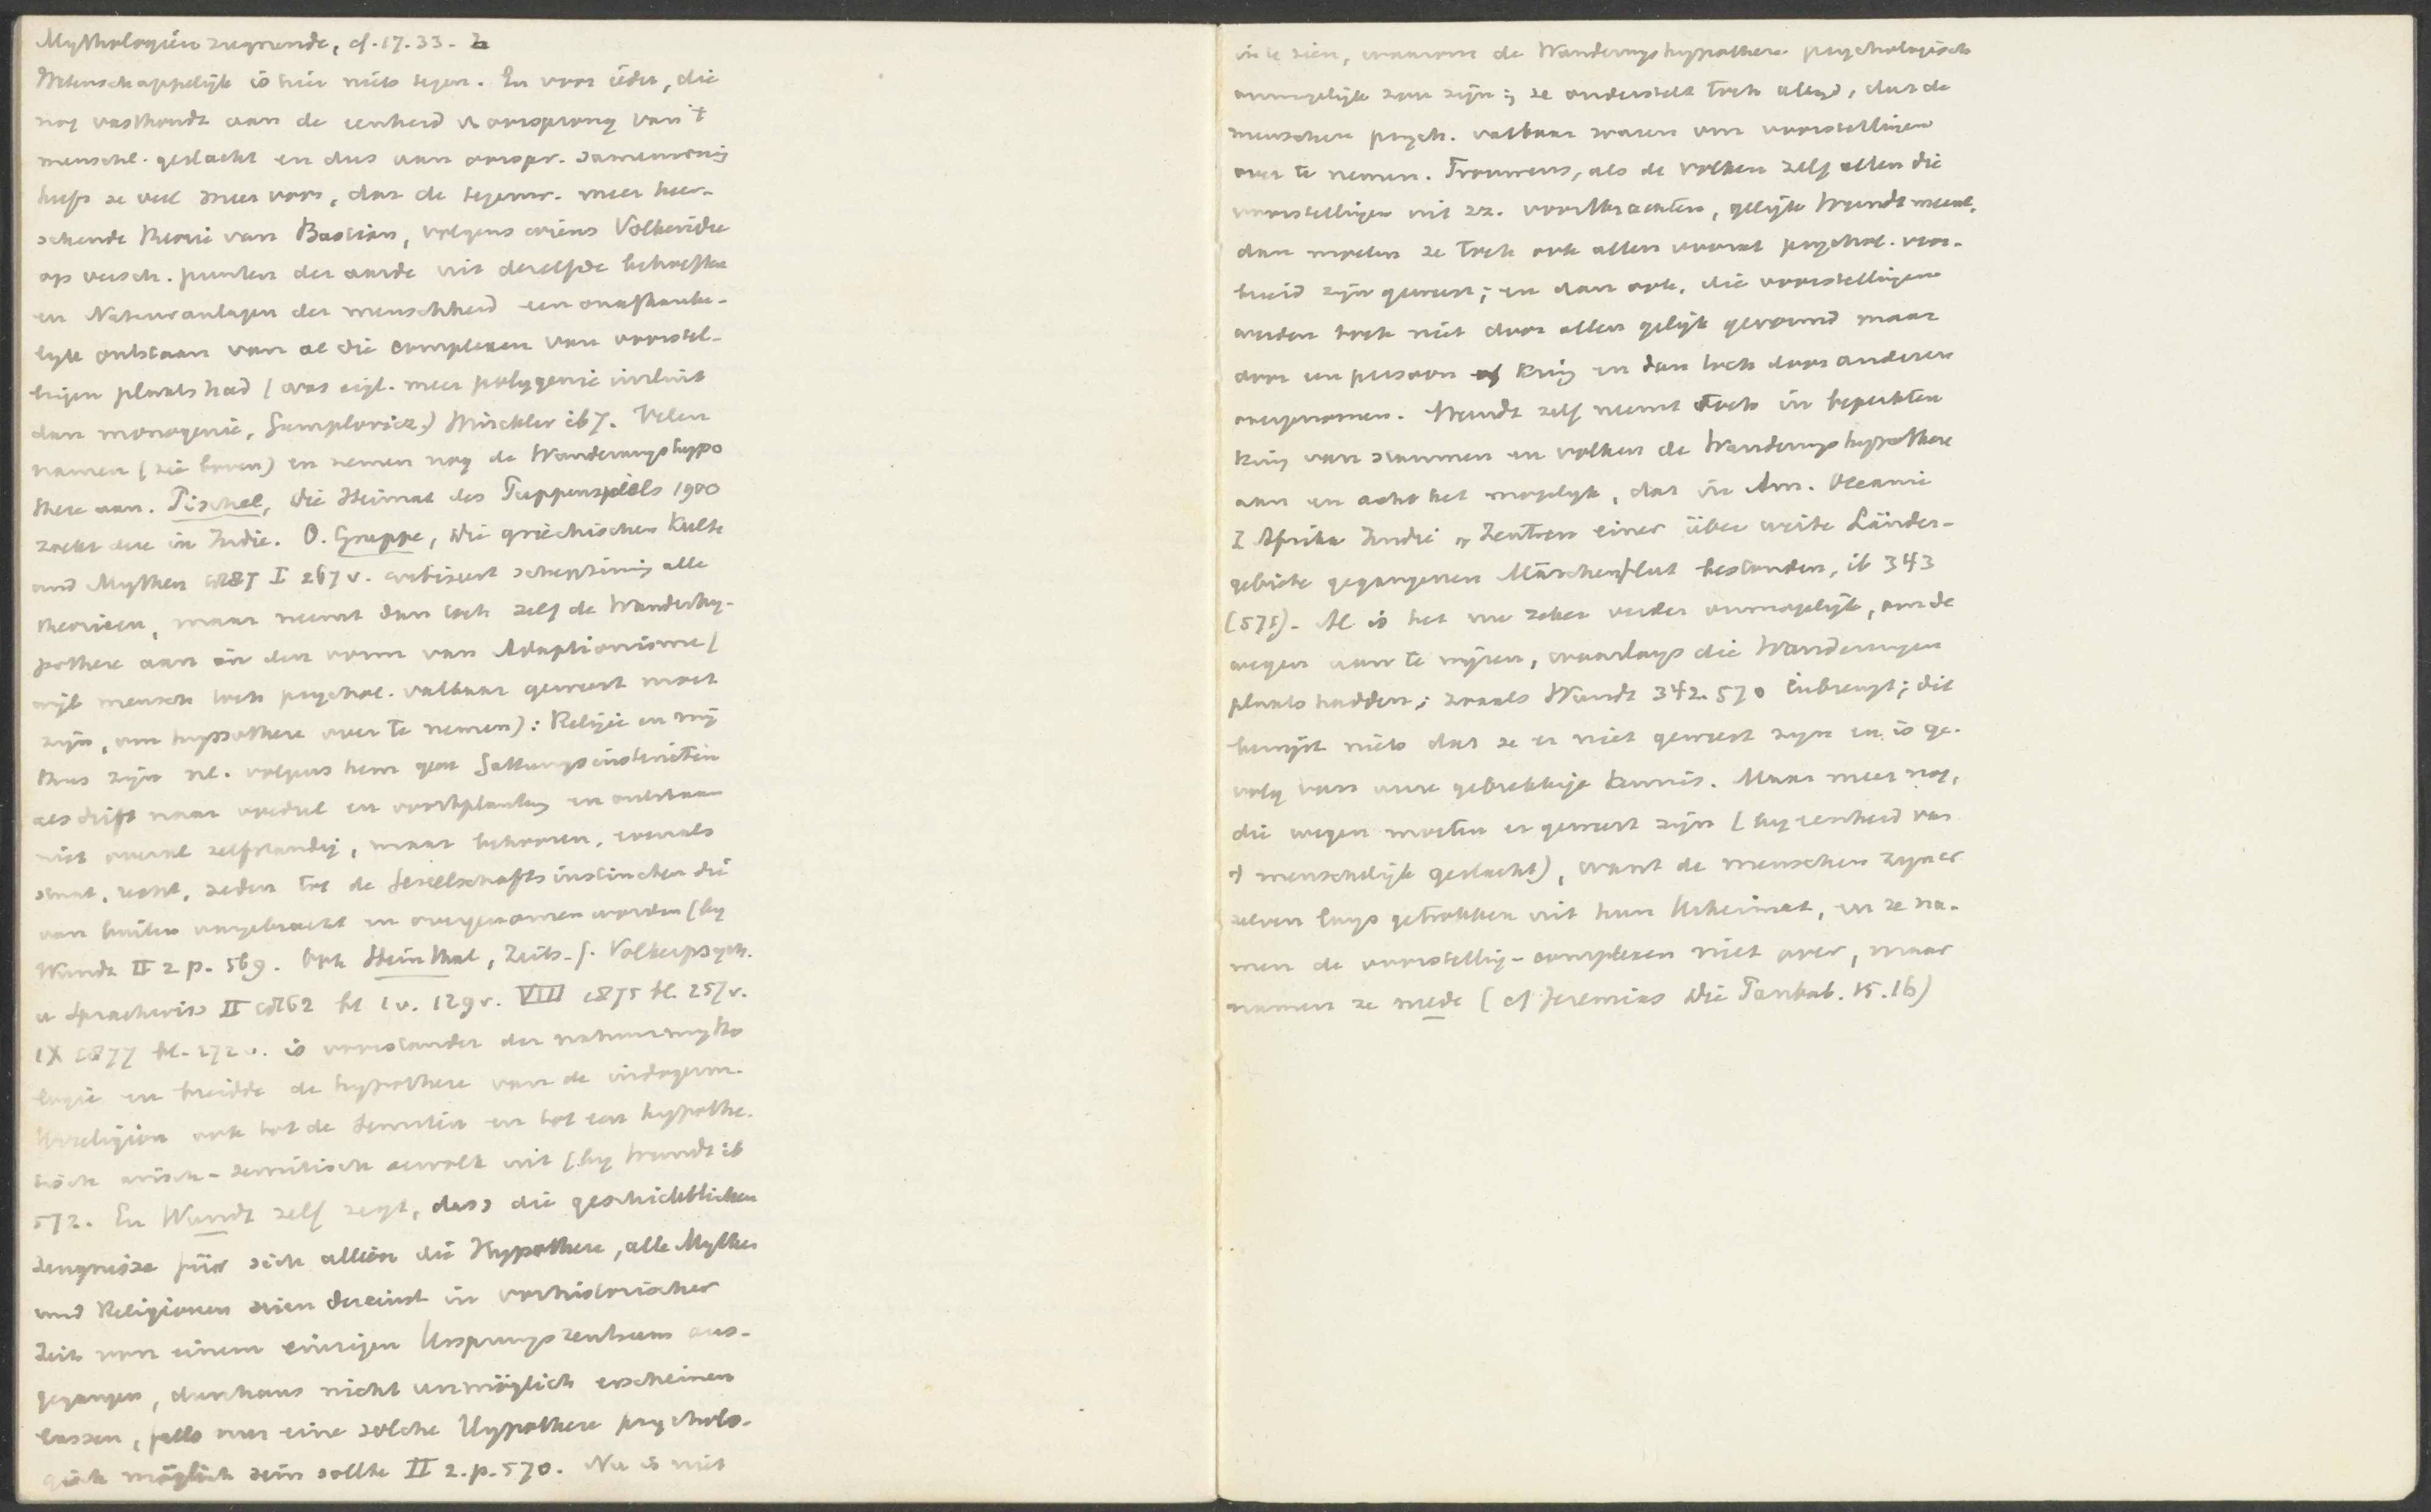 Mythologien zugrunde, cf. 17. 33. -
Wetenschappelijk is hier niets tegen. En voor ieder, die
nog vasthoudt aan de eenheid v. oorsprong van 't
menschl. geslacht en dus aan oorspr. samenwonig
heeft ze veel meer voor, dan de tegenw. meer heer-
schende theorie van Bastian, volgens wiens Völkeridee
op versch. punten der aarde uit dezelfde behoeften
en Naturanlagen der menschheid een onafhanke-
lyk ontstaan van al die complexen van voorstel-
lingen plaats had (was eigl. meer polygenie insluit
dan monogenie, Gumplovicz,) Winckler ib 7. Velen
namen (zie boven) en nemen nog de Wanderungshypo
these aan. Pischel, Die Heimat des Puppenspiels 1900
zoekt deze in Indie. O. Gruppe, Die griechischen Kulte
und Mythen 1887 I 267 v. critiseert scherpzinnig alle
theorieen, maar neemt dan toch zelf de Wanderhy-
pothese aan in den vorm van Adaptionisme (
wijl mensch toch psychol. vatbaar geweest moet
zijn, om hypothese over te nemen): Religie en my
thus zijn nl. volgens hem geen Gattungsinstincten
als drift naar voedsel en voortplanting en ontstaan
niet overal zelfstandig, maar behooren, evenals
staat, recht, zeden tot de Gesellschaftsinstincten die
van buiten aangebracht en overgenomen worden (by
Wundt II 2 p. 569. Ook Steinthal, Zeits. f. Völkerpsych.
u Sprachwiss II 1862 bl 1 v. 129 v. VIII 1875 bl. 257 v.
IX 1877 bl. 272 v. is voorstander der natuurmytho
logie en breidde de hypothese van de indogerm.
Urreligion ook tot de Semiten en tot een hypothe-
tisch arisch-semitisch oervolk uit (by Wundt ib
572. En Wundt zelf zegt, dass die geschichtlichen
Zeugnisse für sich allein die Hypothese, alle Mythen
und Religionen seien dereinst in vorhistorischer
Zeit von einem einzigen Ursprungszentrum aus-
gegangen, durchaus nicht unmöglich erscheinen
lassen, falls nur eine solche Hypothese psycholo-
gisch möglich sein sollte II 2. p. 570. Nu is niet
in te zien, waarom de Wanderungshypothese psychologisch
onmogelijk zou zijn; ze onderstelt toch altijd, dat de
menschen psych. vatbaar waren om voorstellingen
over te nemen. Trouwens, als de volken zelf allen die
voorstellingen uit zz. voortbrachten, gelijk Wundt meent,
dan moeten ze toch ook allen vooraf psychol. voor-
bereid zijn geweest; en dan ook, die voorstellingen
werden toch niet door allen gelijk gevormd maar
door een persoon of kring en dan toch door anderen
overgenomen. Wundt zelf neemt toch in beperkten
kring van stammen en volken de Wanderungshypothese
aan en acht het mogelyk, dat in Am. Oceanie
Z Afrika Indie Zentren einer über weite Länder-
gebiete gegangenen Märchenflut bestanden, ib 343
(571). Al is het nu zeker verder onmogelijk, om de
wegen aan te wijzen, waarlangs die Wanderungen
plaats hadden; zooals Wundt 342. 570 inbrengt; dit
bewijst niets dat ze er niet geweest zyn en is ge-
volg van onze gebrekkige kennis. Maar meer nog,
die wegen moeten er geweest zijn (by eenheid van
't menschelijk geslacht), want de menschen zyn er
zelven langs getrokken uit hun Urheimat, en ze na-
men de voorstelling-complexen niet over, maar
namen ze mede (cf Jeremias Die Panbab. 15. 16)